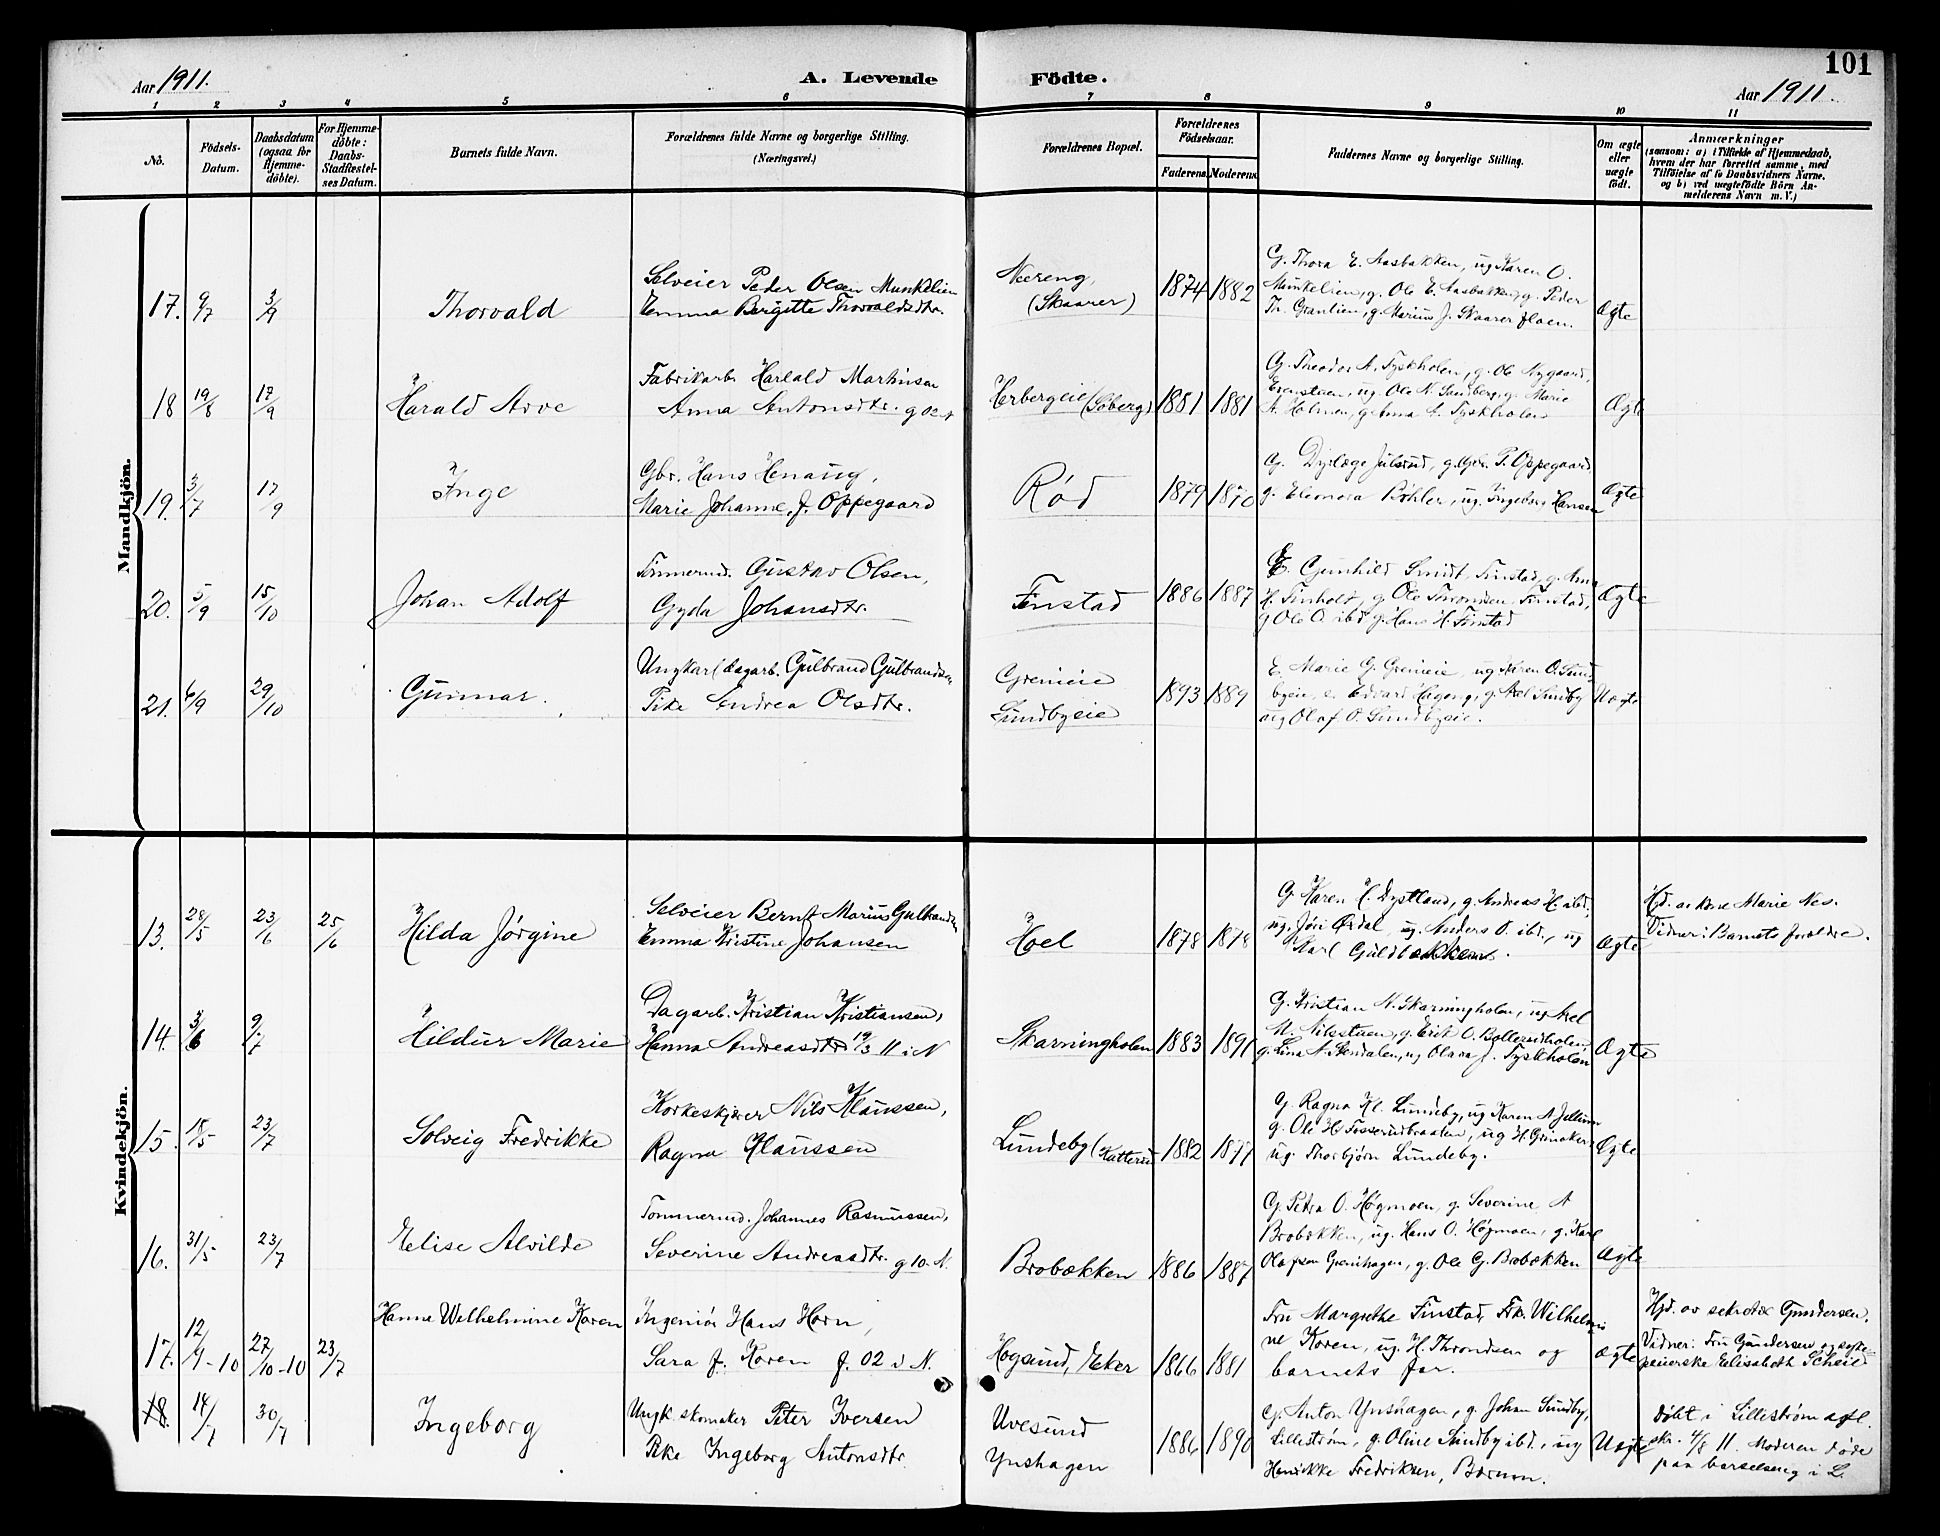 101
Aar 1911.
A. Levende Födte.
Aar 1911.
1 2 3 4 5 6 7 8 9 10 11
No.
Födsels-Datum.
Daabsdatum (ogsaa for Hjemme-döbte).
For Hjemme-döbte: Daabs-Stadfæstel-ses Datum.
Barnets fulde Navn.
Forældrenes fulde Navne og borgerlige Stilling.
(Næringsvei.)
Forældrenes Bopæl.
Forældrenes Födselsaar.
Faderens. Moderens.
Faddernes Navne og borgerlige Stilling.
Om ægte eller uægte födt.
Anmærkninger
(saasom: a) i Tilfælde af Hjemmedaab,
hvem der har forrettet samme, med
Tilföielse af to Daabsvidners Navne,
og b) ved uægtefödte Börn An-
melderens Navn m. V.)
Mandkjön.
17. 9/7 3/9 Thorvald
Selveier Peder Olsen Munkelien
Emma Birgitte Thorvaldsdtr.
Nereng, (Skaarer)
1874 1882
G. Thora E. Aasbakken, ug Karen O.
Munkelien, g. Ole E. Aasbakken, g. Peder
Th. Granlien, g. Marius J. Skaarer floen.
Ægte
18 19/8 17/9 Harald Arve
Fabrikarb. Harald Martinsen
Anna Antonsdtr.
Herbergeie (Soberg)
1881 1881
G. Theodor A. Tyskholen, g. Ole Nygaard,
Evenstuen, ug Ole N. Sandberg, g. Marie
A. Holmen, g Anna A. Tyskholen
Ægte
19. 3/7 17/9 Inge
Gbr. Hans Henaug,
Marie Johanne, f. Oppegaard
Rød
1879 1870
G. Dyrlæge Julsrud, g. Gbr. P. Oppegaard
g. Eleonora Bøhler, ug. Ingeborg Hansen
Ægte
20. 5/9 15/10 Johan Adolf
Tømmermd. Gustav Olsen,
Gyda Johansdtr.
Finstad
1886 1887
E. Gunhild Smidt, Finstad, g. Ama
H. Finholt, g Ole Throndsen Finstad,
g Ole O. ibd, g. Hans H. Finstad
Ægte
21. 6/9 29/10 Gunnar.
Ungkar (dagarb. Gulbrand Gulbrandsen
Pike Andrea Olsdtr.
Grenieie
Sundbyeie
1893 1889
E. Marie G. Grenieie, ug Karen O. Sund
byeie, e. Edvard Høgeng, g. Axel Sundby
ug Olaf O. Sundbyeie.
Uægte
Kvindekjön.
13. 28/5 23/6 25/6 Hilda Jørgine
Selveier Bernt Marius Gulbrandsen
Emma Kristine Johansen
Hoel
1878 1878
G. Karen H. Dystland, g. Andreas H. ibd,
ug. Jøri Ørdal, ug. Anders O. ibd., ug
Karl Guldbakken.
Ægte
Hd. av Kone Marie Nes.
Vidner: Barnets foreldre.
14. 3/6 9/7 Hildur Marie
Dagarb. Kristian Kristiansen,
Hanna Andreasdtr 19/3 11 i N
Skarningholen
1883 1891
G. Kristian N. Skarningholen, ug Axel
M. Nilsstuen, g. Erik O. Bollerudholen,
g. Lina A. Stendalen, ug Olava J. Tyskholen
Ægte
15. 18/5 23/7 Solveig Fredrikke
Korkeskjærer Nils Klaussen,
Ragna Klaussen
Lundeby (Katterud
1882 1877
G. Ragna Kl. Lundeby, ug Karen A. Jellum
g. Ole H. Fosserudbraaten, ug H. Grinaker,
ug. Thorbjørn Lundeby.
Ægte
16. 31/5 23/7 Elise Alvilde
Tømmermd. Johannes Rasmussen,
Severine Andreasdtr. g 10. N.
Brobækken
1886 1887
G. Petra O. Høgmoen, g. Severine A
Brobækken, ug. Hans O. Høgmoen, g. Karl
Olafsen Grenihagen, g. Ole G. Brobækken
Ægte
17. 12/9-10 27/10-10 23/7 Hanna Wilhelmine Koren
Ingeniør Hans Horn,
Sara f. Koren f. 02 i N.
Hogsund, Eker
1866 1881
Fru Margrethe Finstad, Frk. Wilhelmi
ne Koren, ug. H. Throndsen og
barnets far.
Ægte
Hjd. av sekretær Gundersen.
Vidner: Fru Gundersen, og syke-
peierske Elisabeth Scheie
18. 14/7 30/7 Ingeborg
Ungk. skomaker Peter Iversen
Pike Ingeborg Antonsdtr
Uvesund
Ynshagen
1886 1890
G. Anton Ynshagen, g. Johan Sundby,
Lillestrøm, g. Oline Sundby ibd., ug
Henrikke Fredriksen, Bærum.
Uægte
Døbt i Lillestrøm
skr. 4/8 11. Moderen døde
paa barselseng i L.